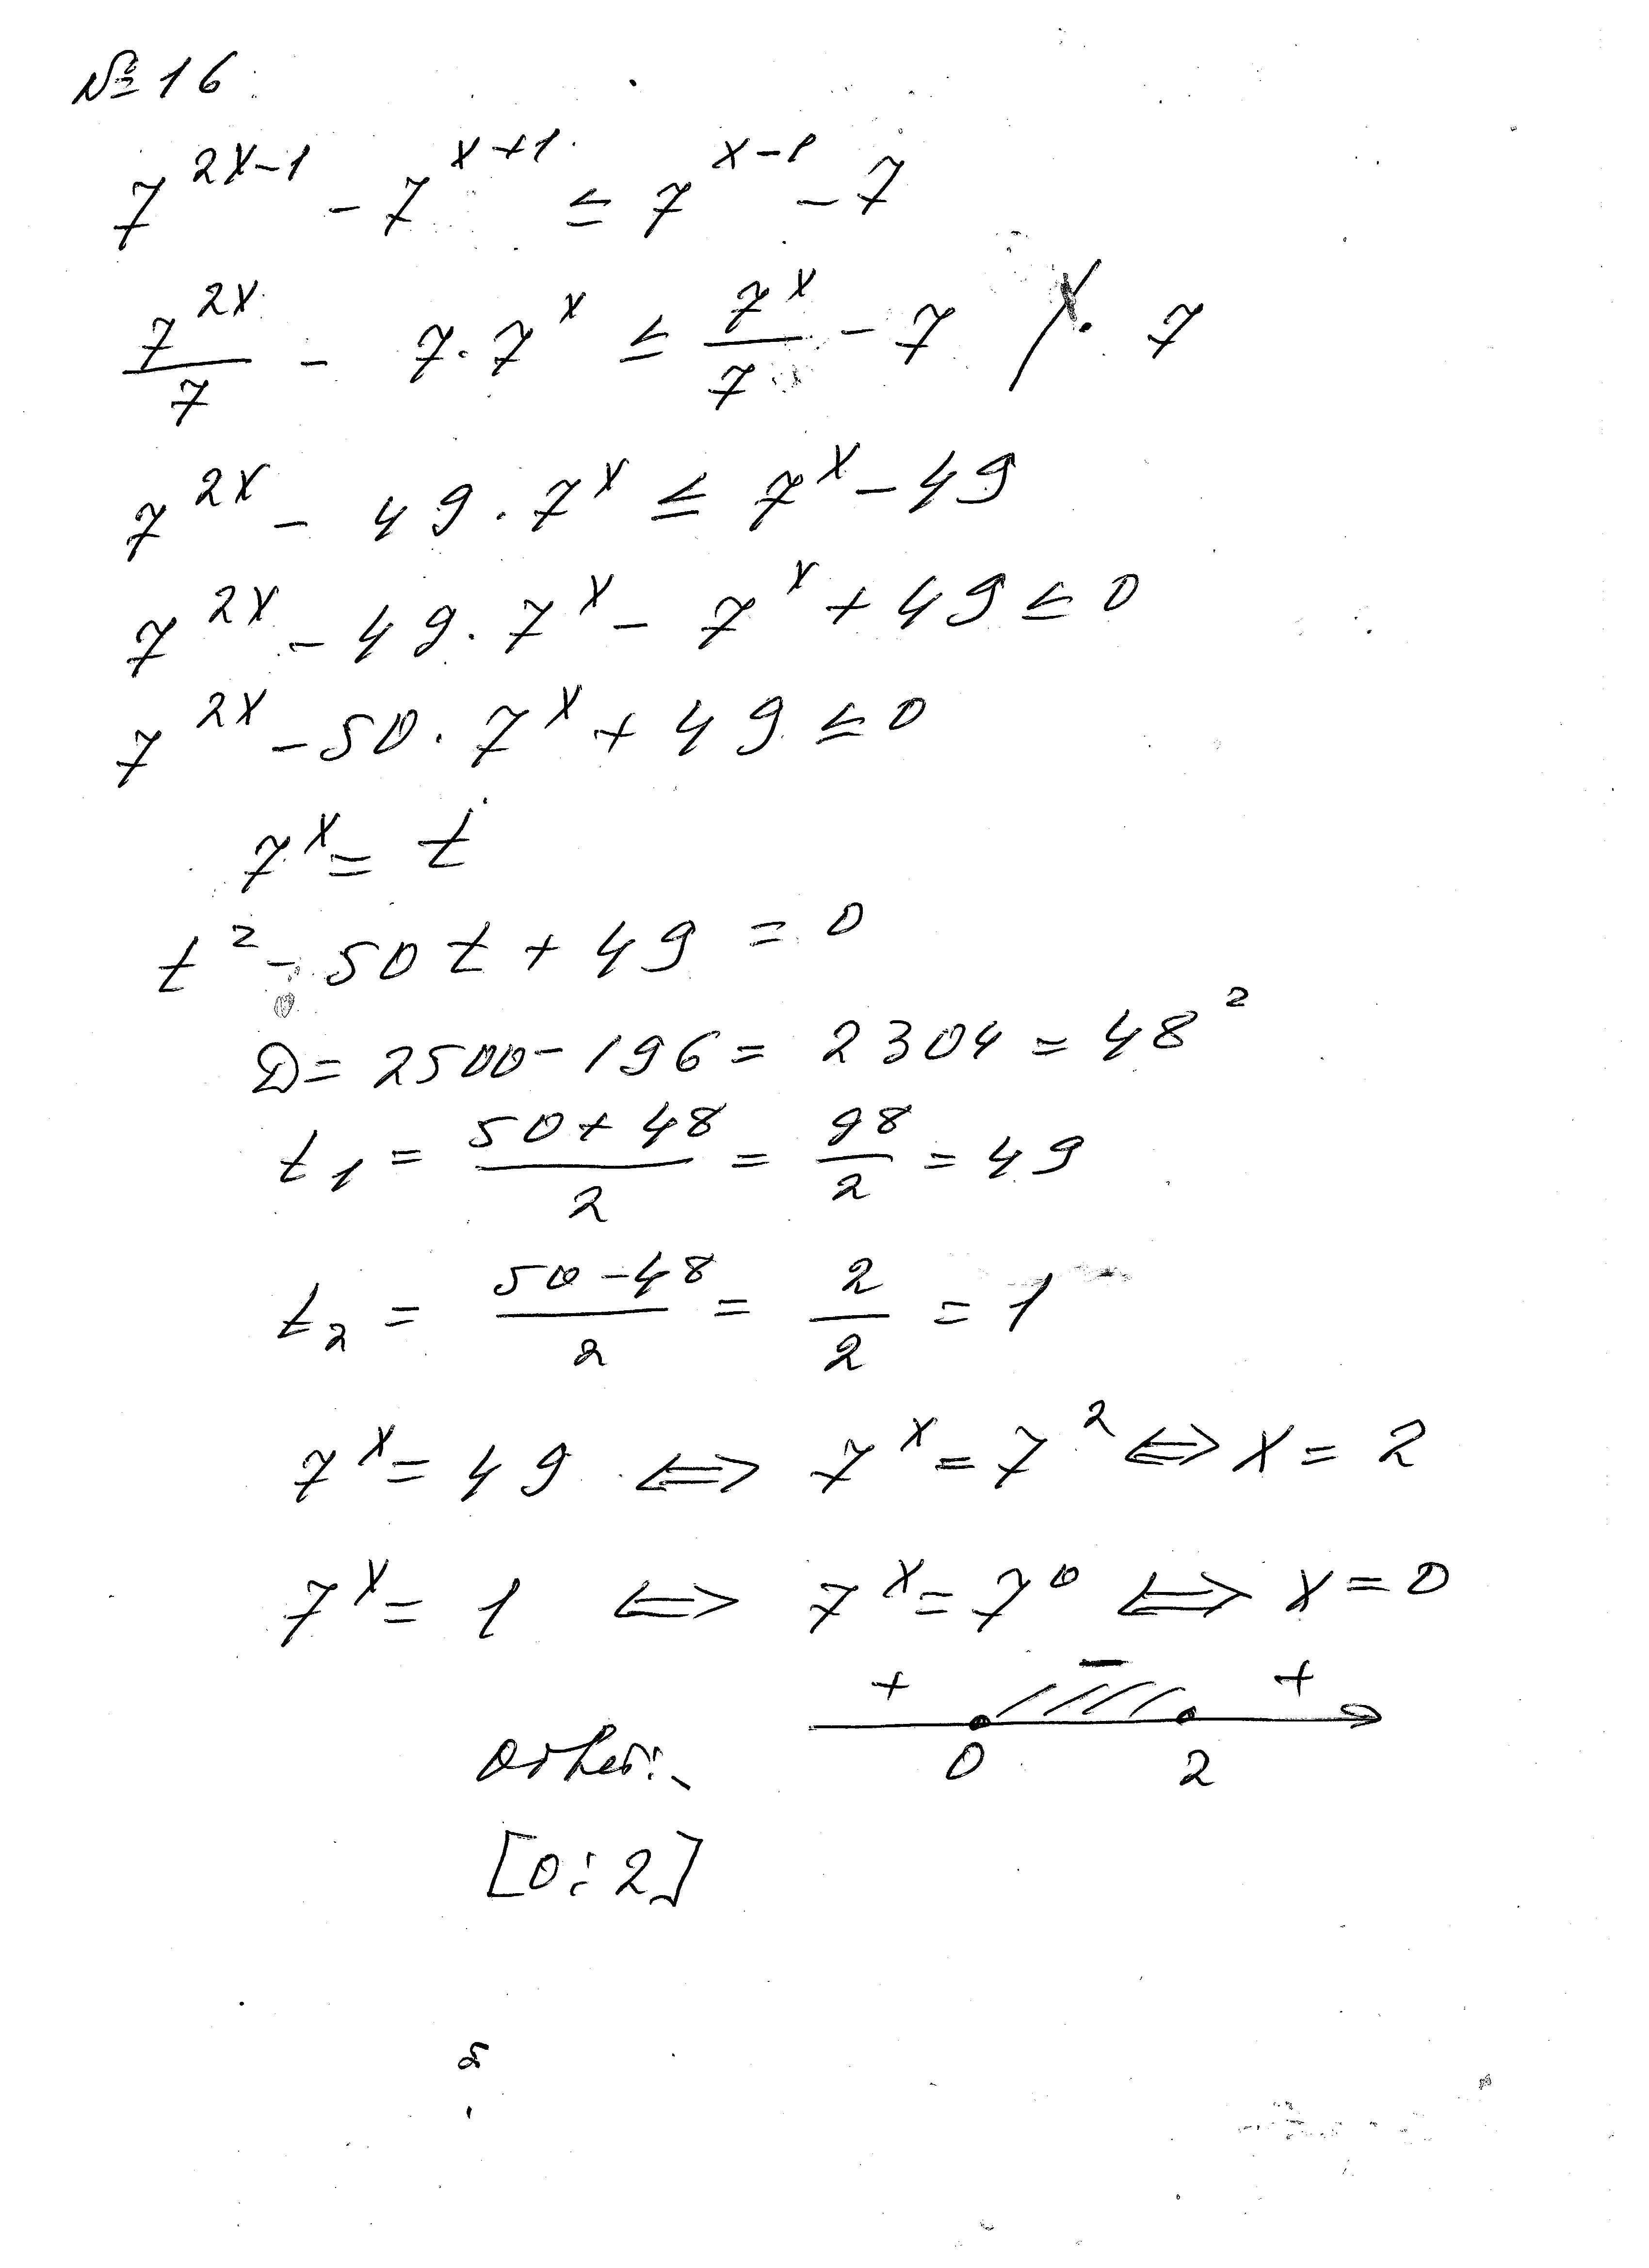 № 16
7^{2x-1} - 7^{x+1} ≤ 7^{x-1} - 7
7^{2x}/7 - 7·7^x ≤ 7^x/7 - 7 /· 7
7^{2x} - 49·7^x ≤ 7^x - 49
7^{2x} - 49·7^x - 7^x + 49 ≤ 0
7^{2x} - 50·7^x + 49 ≤ 0
7^x = t
t² - 50t + 49 = 0
D = 2500 - 196 = 2304 = 48²
t₁ = (50+48)/2 = 98/2 = 49
t₂ = (50-48)/2 = 2/2 = 1
7^x = 49 ⇔ 7^x = 7² ⇔ x = 2
7^x = 1 ⇔ 7^x = 7⁰ ⇔ x = 0
+ - +
0 2
Ответ:
[0; 2]